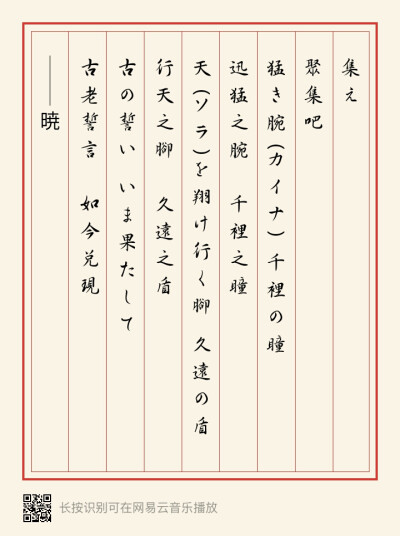 集え
聚集吧
猛き腕(カイナ) 千裡の瞳
迅猛之腕 千裡之瞳
天(ソラ)を翔け行く脚 久遠の盾
行天之腳 久遠之盾
古の誓い いま果たして
古老誓言 如今兌現
——暁
长按识别可在网易云音乐播放